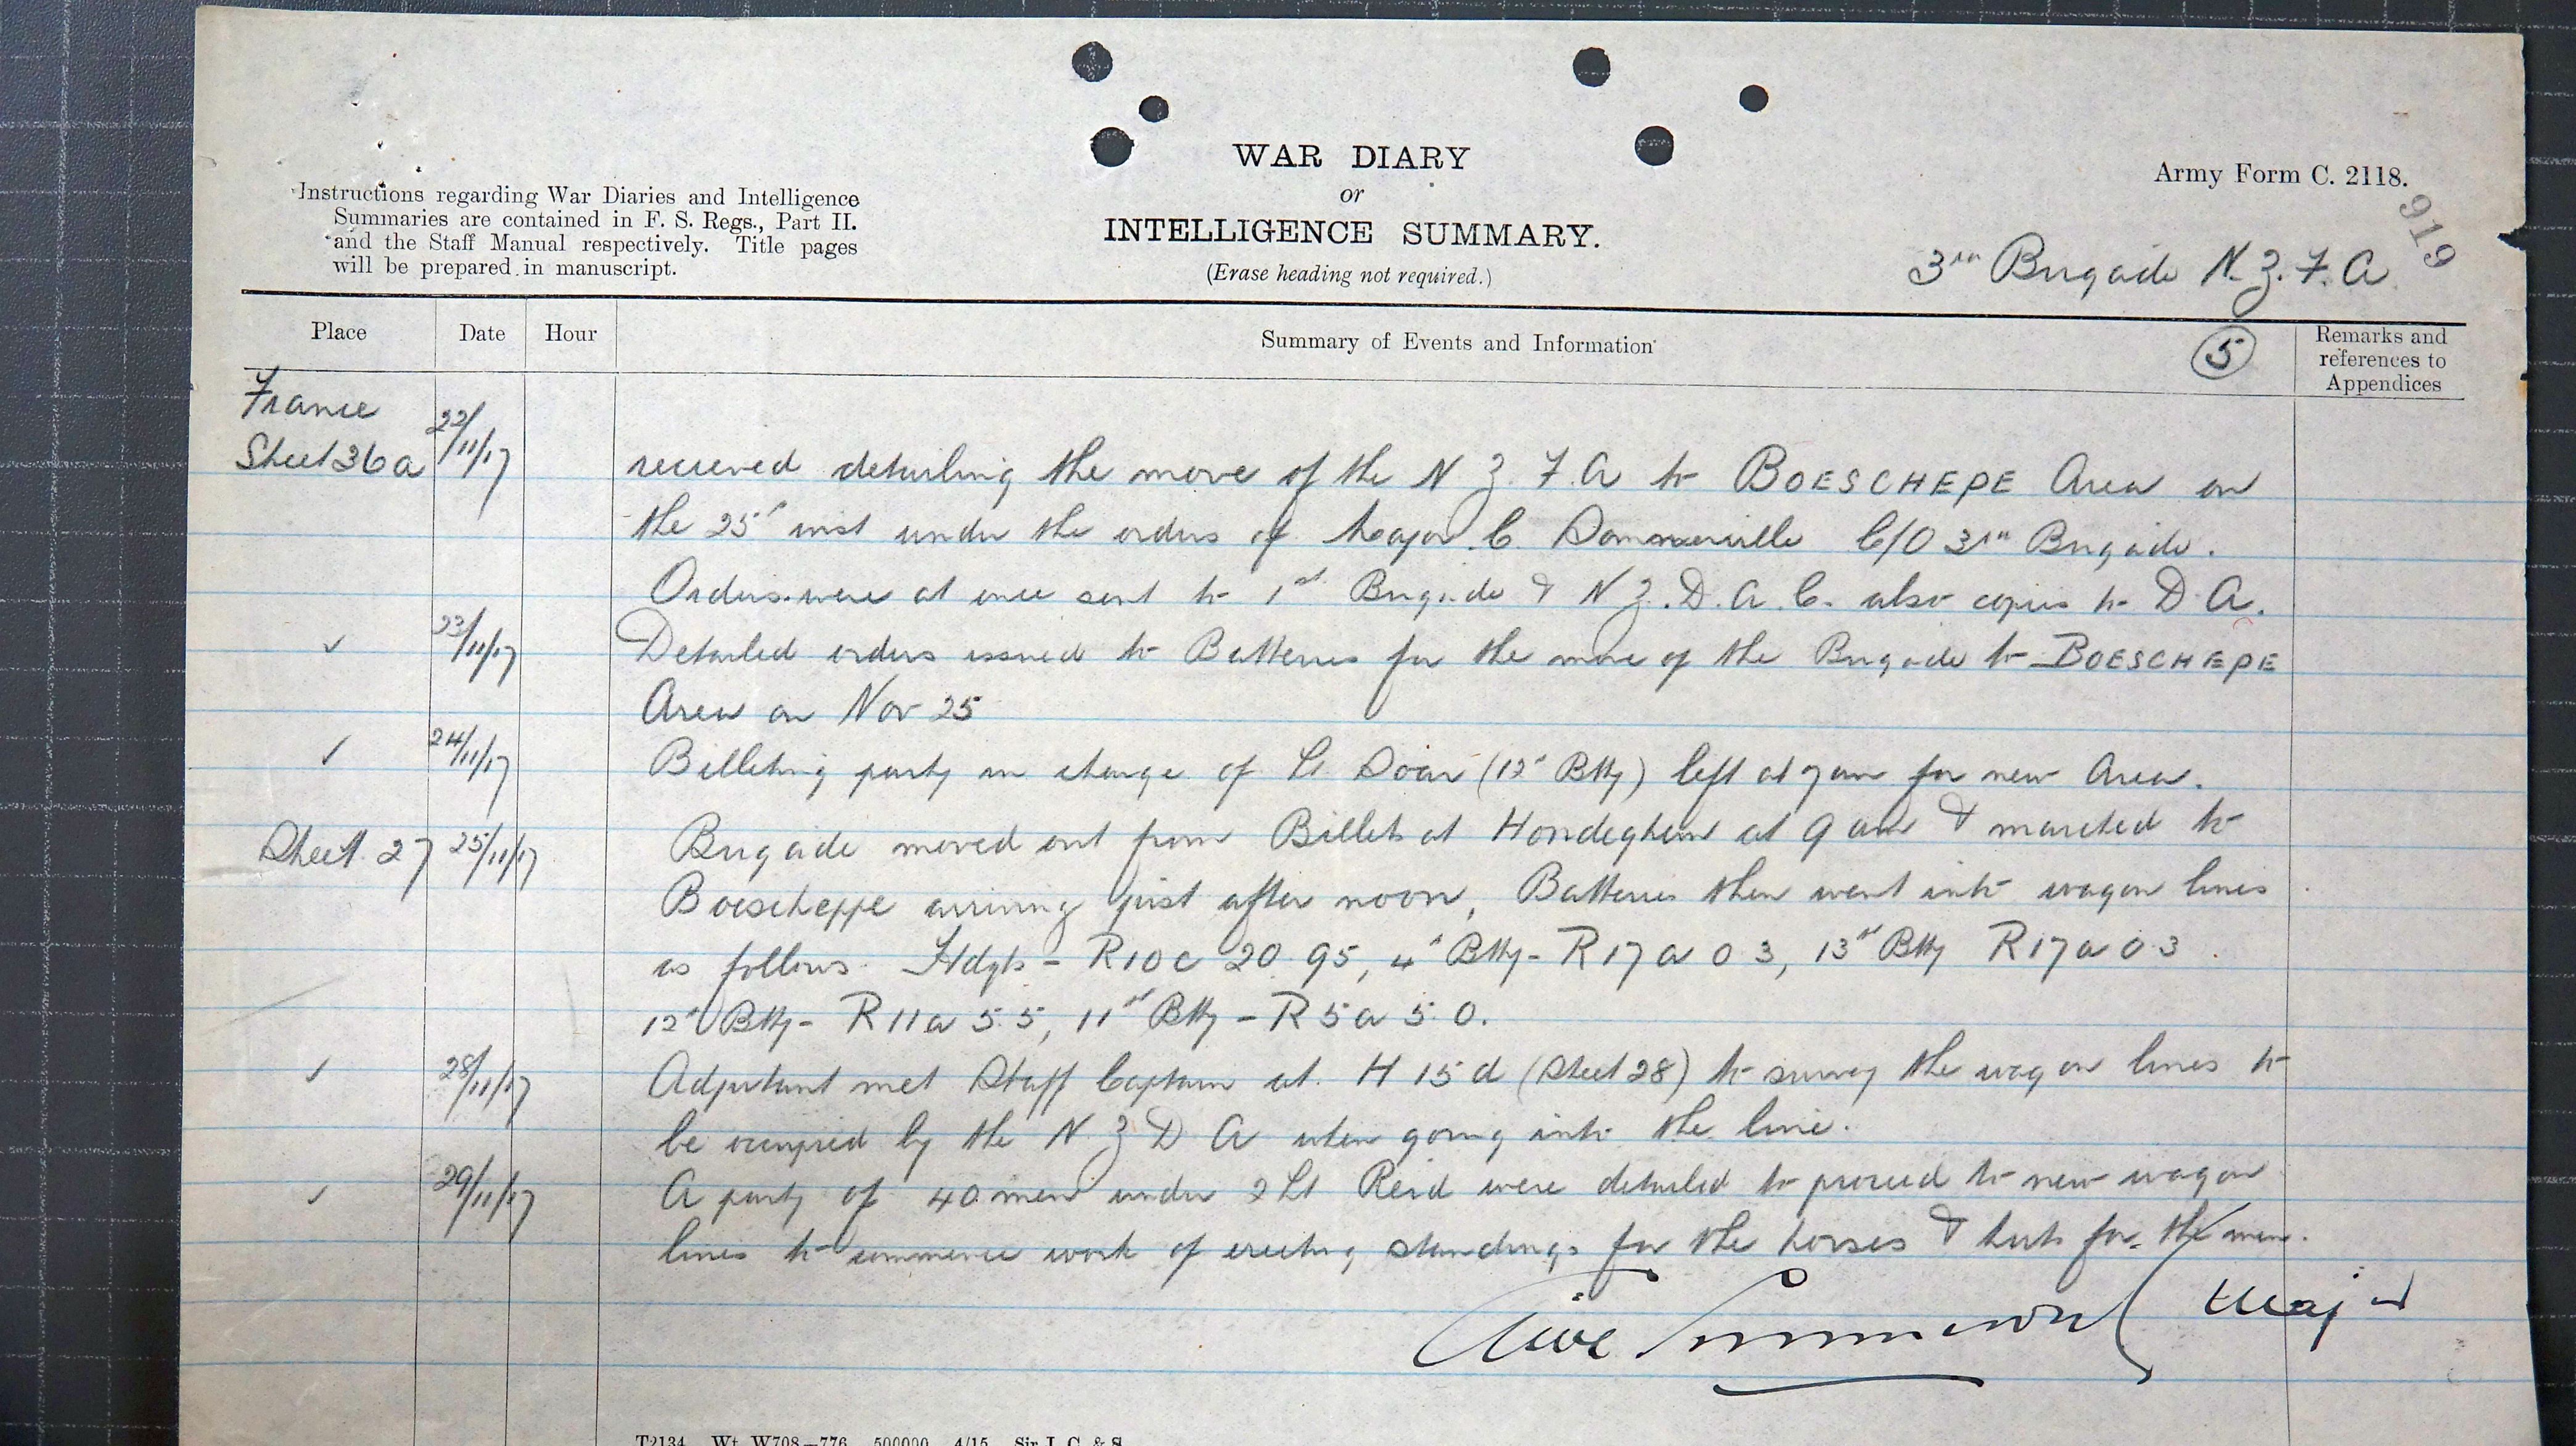 WAR DIARY
or
INTELLIGENCE SUMMARY.
(Erase heading not required.)
Instructions regarding War Diaries and Intelligence
Summaries are contained in F. S. Regs., Part II.
and the Staff Manual respectively. Title pages
will be prepared in manuscript.
Army Form C. 2118.
919
3rd Brigade N.Z.F.A
Place Date Hour Summary of Events and Information 5 Remarks and references to Appendices
France
Sheet 36a 22/11/17 recieved detailing the move of the N Z. F.A to BOESCHEPE Area on
the 25th inst under the orders of Major C. Sommerville C/O 3rd Brigade.
Orders were at once sent to 1st Brigade & N Z. D. A. C. also copies to D.A.
✓ 23/11/17 Detailed orders issued to Batteries for the move of the Brigade to BOESCHEPE
Area on Nov 25
✓ 24/11/17 Billeting party in charge of Lt (12th Bty) left at 7am for new Area.
Sheet 27 25/11/17 Brigade moved out from Billets at Hondeghem at 9 am & marched to
Boescheppe arriving just after noon, Batteries then went into wagon lines
as follows. Hdqts - R10c 20 95, 4th Bty - R17a 0 3, 13th Bty R17a 0 3.
12th Bty - R11a 5.5, 11th Bty - R5a 5.0.
✓ 28/11/17 Adjutant met Staff Captain at H 15 d (Sheet 28) to survey the wagon lines to
be occupied by the N Z D A when going into the line.
✓ 29/11/17 A party of 40 men under 2 Lt Reid were detailed to proceed to new wagon
lines to commence work of erecting standings for the horses & huts for the men.
Major
T2134. Wt. W708—776. 500000. 4/15. Sir J. C. & S.